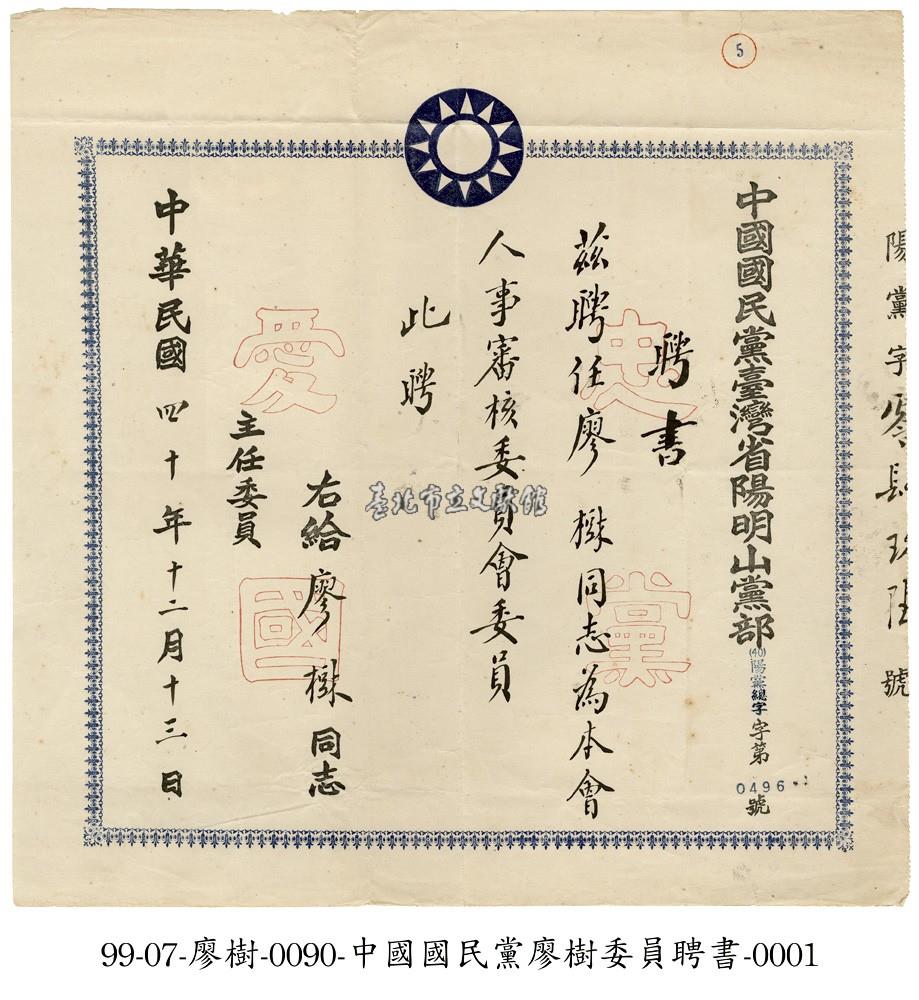 5
陽黨字零肆玖陸號
中國國民黨臺灣省陽明山黨部(40)陽黨總字字第0496號
聘書
茲聘任廖樹同志為本會
人事審核委員會委員
此聘
右給廖樹同志
主任委員
中華民國四十年十二月十三日
忠黨
愛國
臺北市立文獻館
99-07-廖樹-0090-中國國民黨廖樹委員聘書-0001